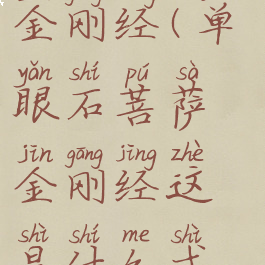 金刚经(单
yǎn shí pú sà
眼石菩萨
jīn gāng jīng zhè
金刚经这
shì shí me shì